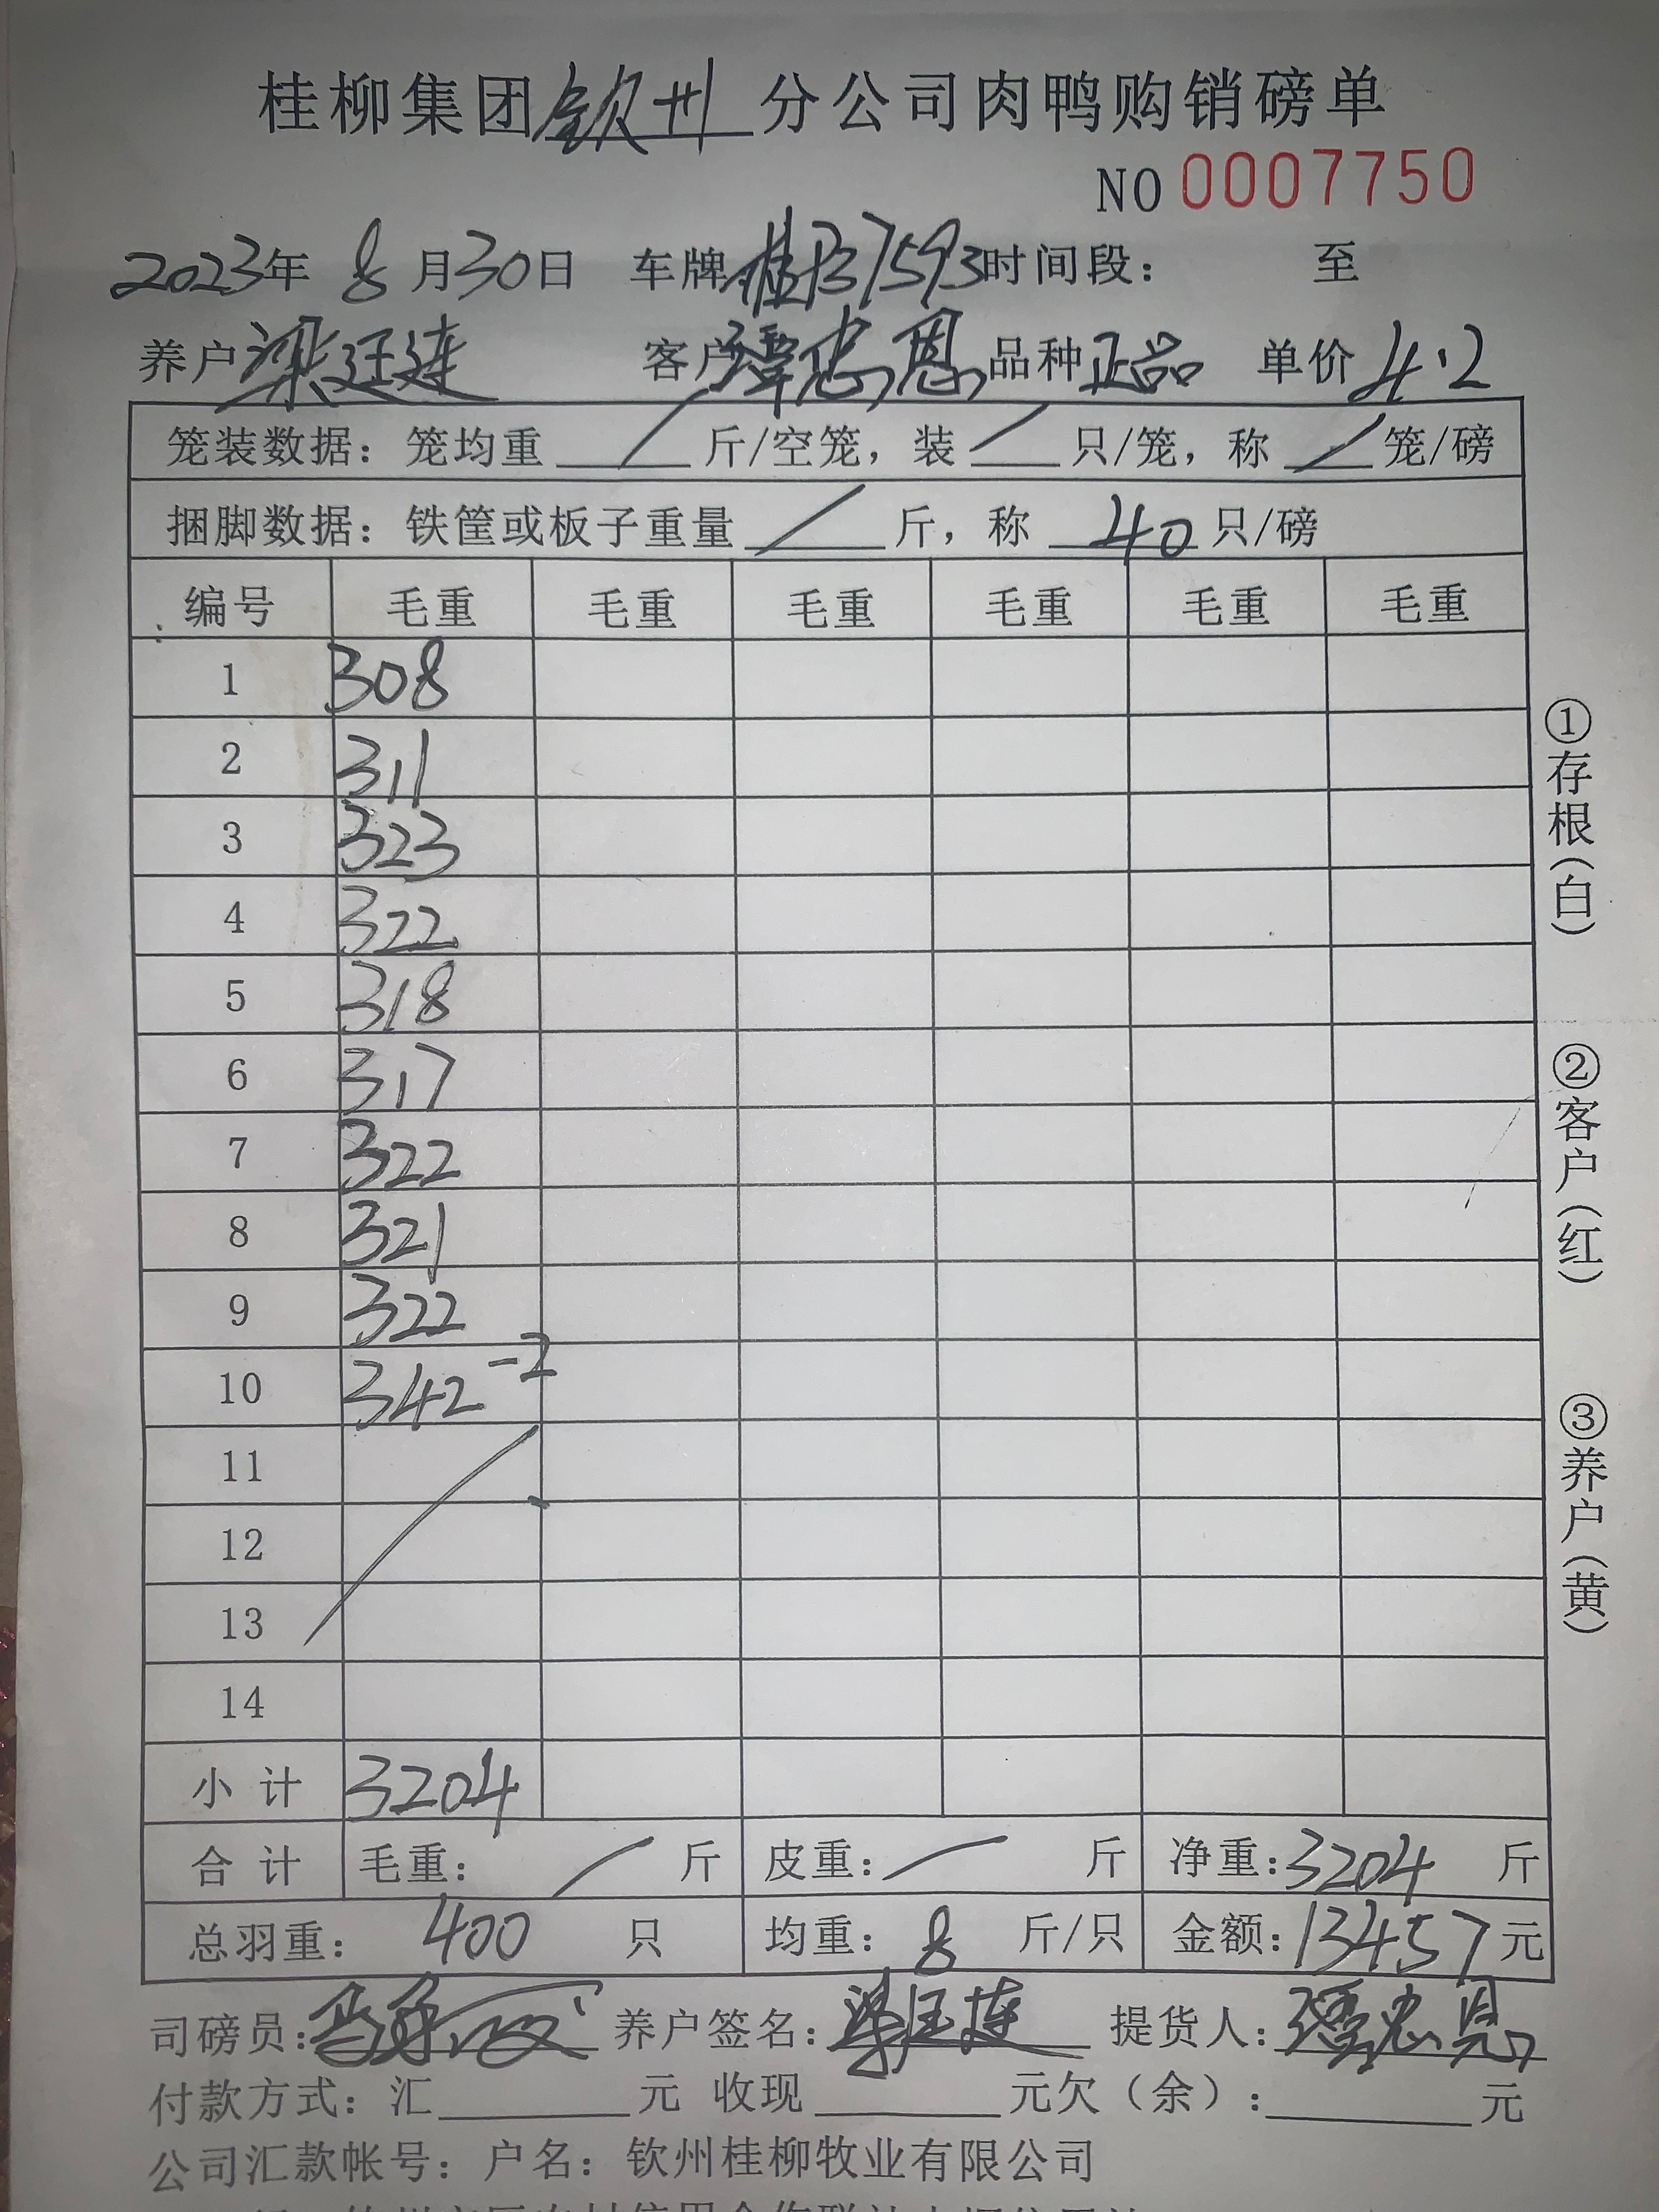 桂柳集团钦州分公司肉鸭购销磅单
NO 0007750
2023年 8月30日 车牌 桂B37593 时间段： 至
养户 梁廷连 客户 谭忠恩 品种 正品 单价 4.2
笼装数据：笼均重 / 斤/空笼，装 / 只/笼，称 / 笼/磅
捆脚数据：铁筐或板子重量 / 斤，称 40 只/磅
编号 毛重 毛重 毛重 毛重 毛重 毛重
1 308
2 311
3 323
4 322
5 318
6 317
7 322
8 321
9 322
10 342 -2
11
12
13
14
小计 3204
合计 毛重： / 斤 皮重： / 斤 净重：3204 斤
总羽重： 400 只 均重： 8 斤/只 金额：13457元
司磅员： 养户签名：梁廷连 提货人：谭忠恩
付款方式：汇 元 收现 元欠（余）： 元
公司汇款帐号：户名：钦州桂柳牧业有限公司
①存根（白）
②客户（红）
③养户（黄）